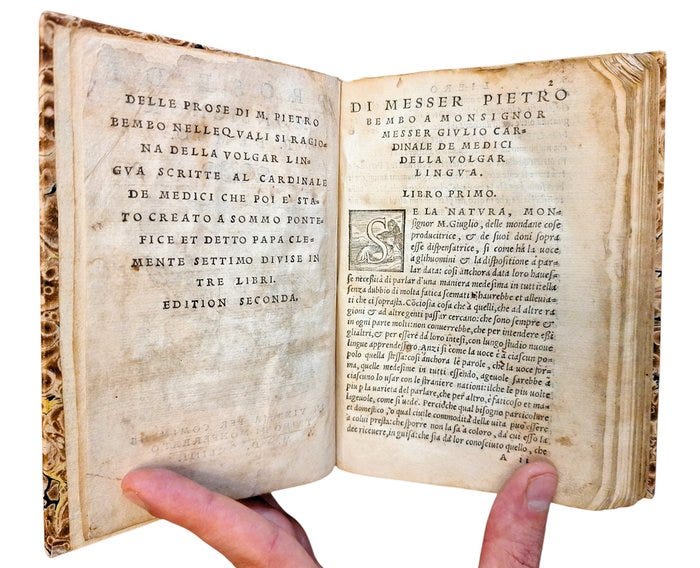 DELLE PROSE DI M. PIETRO
BEMBO NELLE QVALI SI RAGIO=
NA DELLA VOLGAR LIN=
GVA SCRITTE AL CARDINALE
DE MEDICI CHE POI E' STA=
TO CREATO A SOMMO PONTE=
FICE ET DETTO PAPA CLE=
MENTE SETTIMO DIVISE IN
TRE LIBRI.
EDITION SECONDA.
2
DI MESSER PIETRO
BEMBO A MONSIGNOR
MESSER GIVLIO CAR=
DINALE DE MEDICI
DELLA VOLGAR
LINGVA.
LIBRO PRIMO.
SE LA NATVRA, MON=
signor M. Giuglio, delle mondane cose
producitrice, & de suoi doni sopra
esse dispensatrice, si come hà la uoce
a glihuomini & la dispositione à par=
lar data: così anchora data loro hauef=
se necessità di parlar d'una maniera medesima in tutti; ella
senza dubbio di molta fatica scemati ci haurebbe et alleuia=
ti che ci soprastà. Cōciosia cosa che à quelli, che ad altre ra
gioni & ad altre genti passar cercano: che sono sempre &
in ogni parte molti: non conuerrebbe, che per intendere essi
glialtri, & per essere dà loro intesi, con lungo studio nuoue
lingue apprendessero. Anzi si come la uoce è à ciascun po=
polo quella stessa: così anchora le parole, che la uoce for=
ma, quelle medesime in tutti essendo, ageuole sarebbe à
ciascuno lo usar con le straniere nationi: ilche le piu uolte
piu p la varieta del parlare, che per altro, è faticoso et ma=
lageuole, come si uede. Percioche qual bisogno particolare
et domestico, o qual ciuile commodità della uita può essere
a colui presta: che sporre non la sà a coloro, da cui esso la
dee riceuere, in guisa: che sia dà lor conosciuto quello, che
A ii